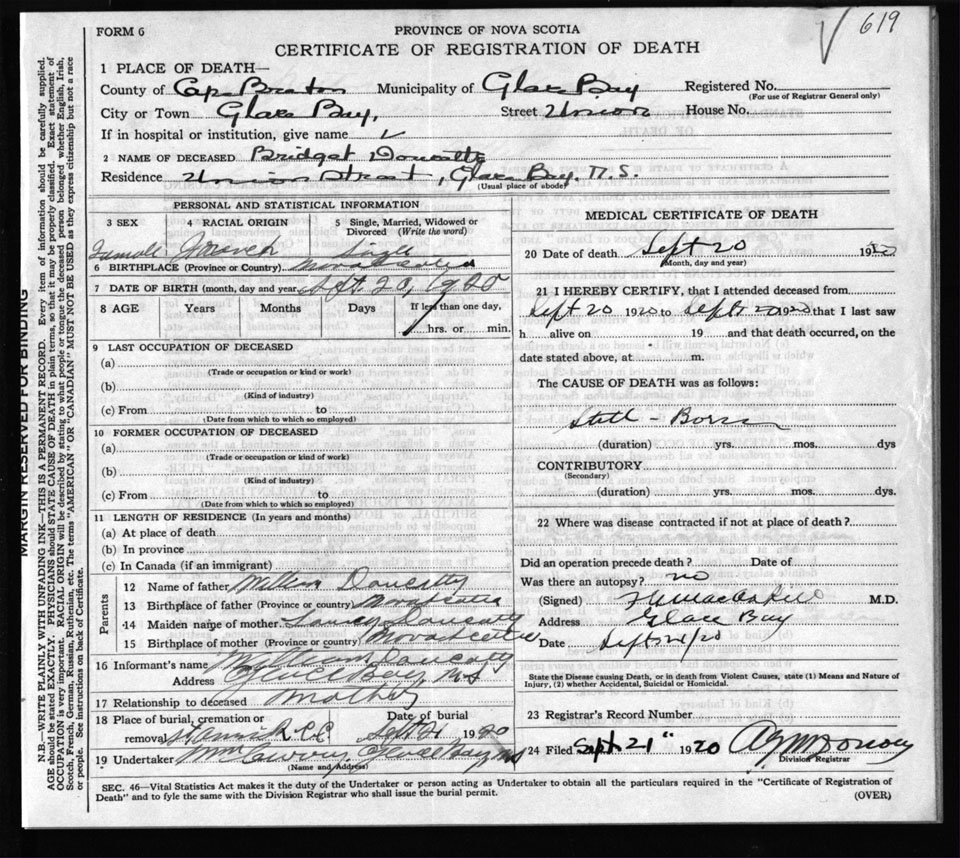 FORM 6
PROVINCE OF NOVA SCOTIA
619
CERTIFICATE OF REGISTRATION OF DEATH
1 PLACE OF DEATH—
County of Cape Breton Municipality of Glace Bay Registered No.
(For use of Registrar General only)
City or Town Glace Bay, Street Union House No.
If in hospital or institution, give name
2 NAME OF DECEASED Bridget Doucette
Residence Union Street, Glace Bay, N.S.
(Usual place of abode)
PERSONAL AND STATISTICAL INFORMATION
3 SEX 4 RACIAL ORIGIN 5 Single, Married, Widowed or Divorced (Write the word)
Female French Single
6 BIRTHPLACE (Province or Country) Nova Scotia
7 DATE OF BIRTH (month, day and year) Sept. 20, 1920
8 AGE Years Months Days If less than one day,
hrs. or min.
9 LAST OCCUPATION OF DECEASED
(a)
(Trade or occupation or kind of work)
(b)
(Kind of industry)
(c) From to
(Date from which to which so employed)
10 FORMER OCCUPATION OF DECEASED
(a)
(Trade or occupation or kind of work)
(b)
(Kind of industry)
(c) From to
(Date from which to which so employed)
11 LENGTH OF RESIDENCE (In years and months)
(a) At place of death
(b) In province
(c) In Canada (if an immigrant)
Parents
12 Name of father William Doucette
13 Birthplace of father (Province or country) Nova Scotia
14 Maiden name of mother Doucette
15 Birthplace of mother (Province or country) Nova Scotia
16 Informant's name Doucette
Address Glace Bay, N.S
17 Relationship to deceased Mother
18 Place of burial, cremation or Date of burial
removal Sept 21 1920
19 Undertaker Glace Bay NS
(Name and Address)
MEDICAL CERTIFICATE OF DEATH
20 Date of death Sept 20 1920
(Month, day and year)
21 I HEREBY CERTIFY, that I attended deceased from
Sept 20 1920 to Sept 20 1920 that I last saw
h alive on 19 and that death occurred, on the
date stated above, at m.
The CAUSE OF DEATH was as follows:
Still - Born
(duration) yrs. mos. dys
CONTRIBUTORY
(Secondary)
(duration) yrs. mos. dys.
22 Where was disease contracted if not at place of death?
Did an operation precede death? Date of
Was there an autopsy? no
(Signed) M.D.
Address Glace Bay
Date Sept 21/20
State the Disease causing Death, or in death from Violent Causes, state (1) Means and Nature of
Injury, (2) whether Accidental, Suicidal or Homicidal.
23 Registrar's Record Number
24 Filed Sept. 21" 1920
Division Registrar
SEC. 46—Vital Statistics Act makes it the duty of the Undertaker or person acting as Undertaker to obtain all the particulars required in the "Certificate of Registration of
Death" and to fyle the same with the Division Registrar who shall issue the burial permit.
(OVER)
MARGIN RESERVED FOR BINDING
N.B.—WRITE PLAINLY WITH UNFADING INK—THIS IS A PERMANENT RECORD. Every item of information should be carefully supplied.
AGE should be stated EXACTLY. PHYSICIANS should STATE CAUSE OF DEATH in plain terms, so that it may be properly classified. Exact statement of
OCCUPATION is very important. RACIAL ORIGIN will be described by stating to what people or tongue the deceased person belonged whether English, Irish,
Scotch, French, German, Russian, Ruthenian, etc. The terms "AMERICAN" OR "CANADIAN" MUST NOT BE USED as they express citizenship but not a race
or people. See instructions on back of Certificate.